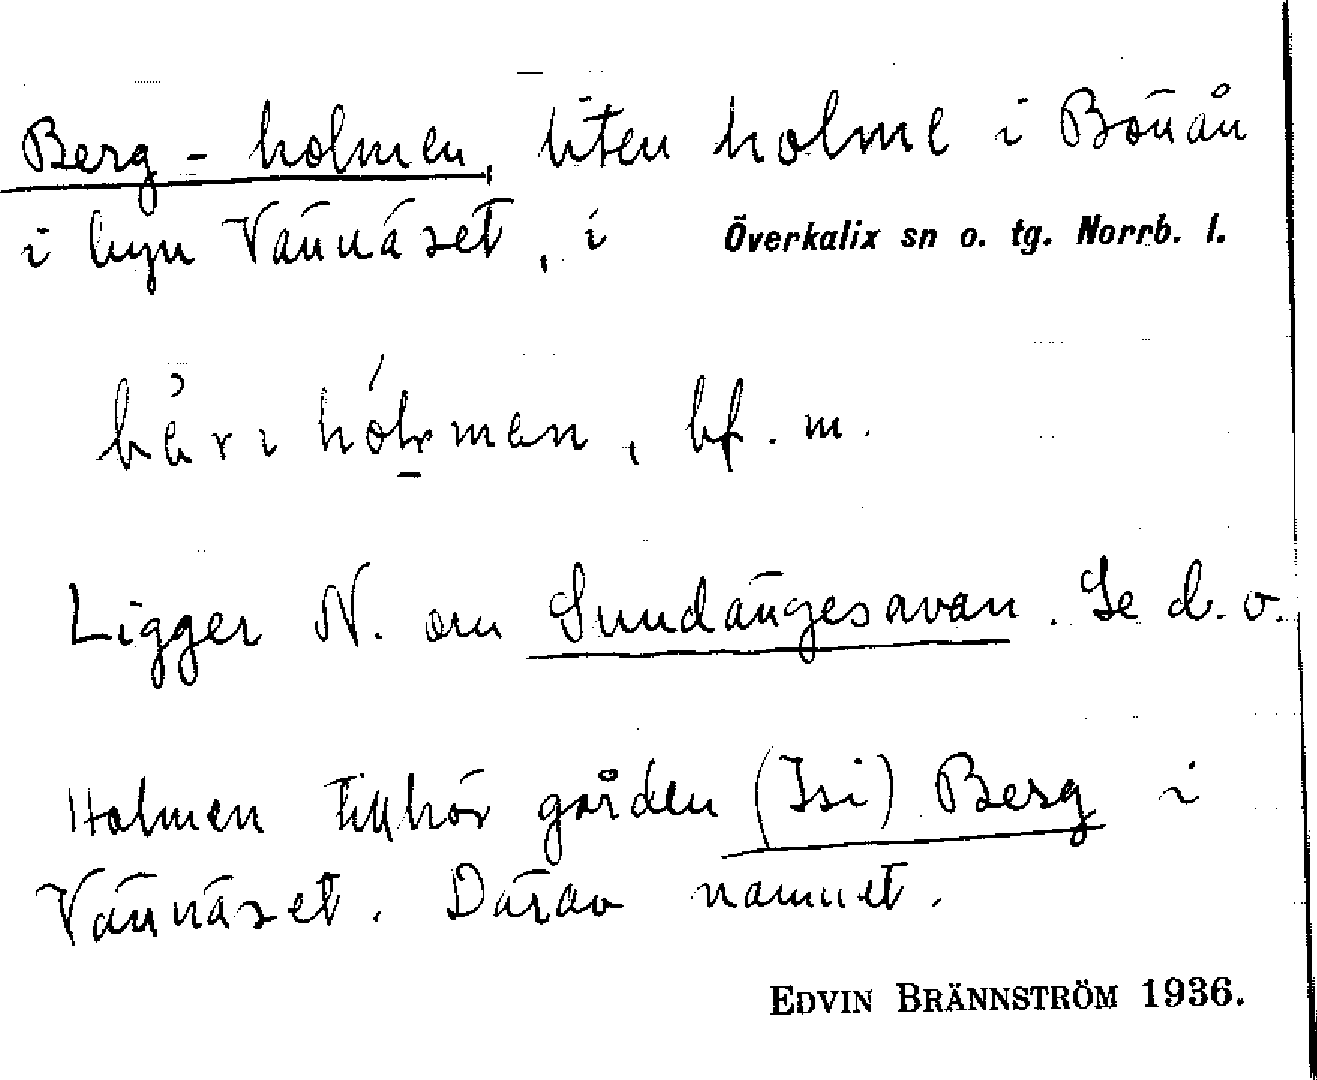 Berg-holmen, liten holme i Bönån
i byn Vännäset, i Överkalix sn o. tg. Norrb. l.
hólmen, bf. m.
Ligger N. om Sundängesavan. Se d. o.
Holmen tillhör gården (Isi) Berg i
Vännäset. Därav namnet.
EDVIN BRÄNNSTRÖM 1936.